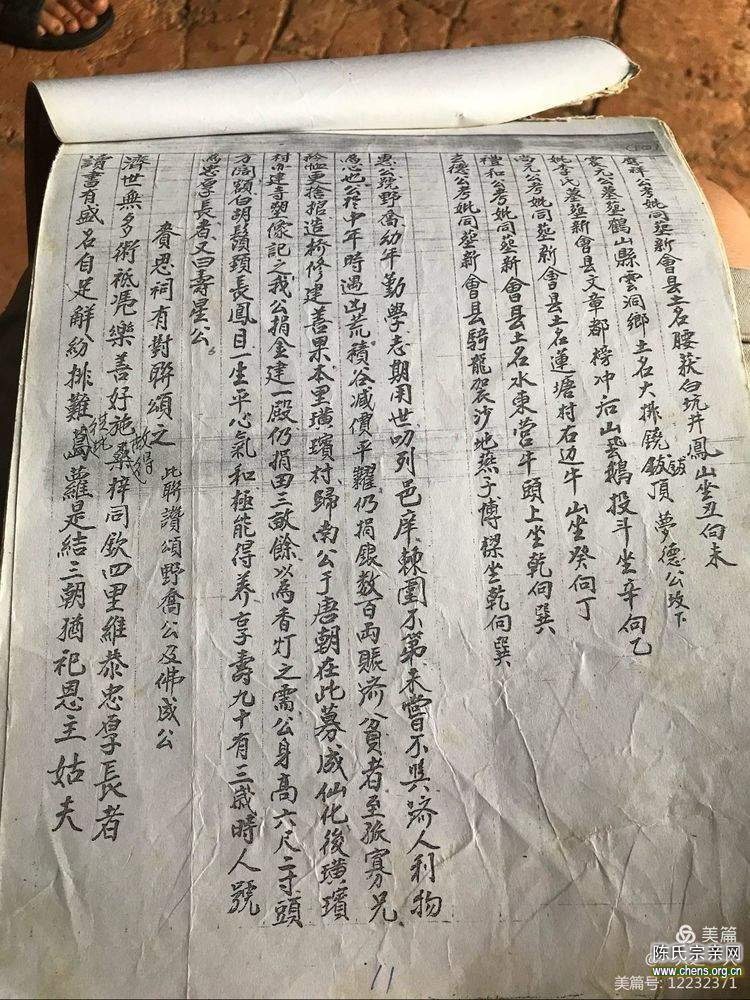 庭祥公考妣同葬新會縣土名腰荻白坑井鳳山坐丑向未
雲元公墓葬鶴山縣雲洞鄉土名大排鐃鈸頂 夢德公坟下
鈸
妣李氏墓葬新會縣文章都榜冲后山飛鵝投斗坐辛向乙
公考妣同葬新會县土名蓮塘村右边牛山坐癸向丁
尚元公考妣同葬新會縣土名水東营牛頭上坐乾向巽
禮和公考妣同葬新會縣騎龍袈沙地燕子博樑坐乾向巽
玄德公
惠公號野喬幼年勤學志期用世叨列邑庠棘圍不第未嘗不興濟人利物
為心公於中年時遇凶荒積谷减價平糶仍捐銀数百両賑济貧者至孤寡兄
恤更捨棺造桥修建善果本里璜璸村歸南公于唐朝在此募成仙化後璜璸
村乃建寺塑像記之我公捐金建一殿仍捐田三畝餘以為香灯之需公身高六尺二寸頭
方闊額白胡鬚頸長鳳目一生平心氣和極能得养享壽九十有三歲時人號
為忠厚長者又曰壽星公。
賚恩祠有對聯頌之 此聯讚頌野喬公及佛成公
濟世無多術祗凴樂善好施桑梓同欽四里維恭忠厚長者
故得
讀書有盛名自足解紛排難葛蘿是結三朝猶祀恩主姑夫
從此
11
美篇
陈氏宗亲网
www.chens.org.cn
美篇号: 12232371